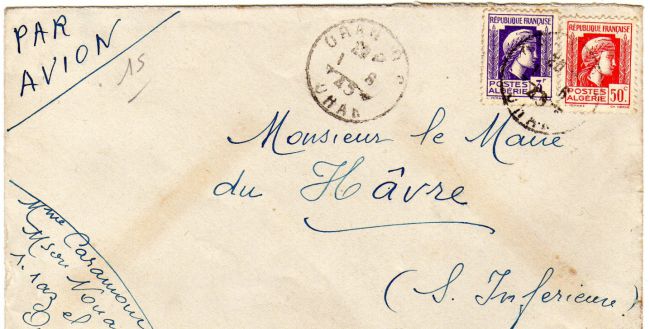 PAR
AVION
15
ORAN R.P
1 - 6
45
ORAN
RÉPUBLIQUE FRANÇAISE
3F
POSTES
ALGÉRIE
RÉPUBLIQUE FRANÇAISE
POSTES
ALGÉRIE
50c
Monsieur le Maire
du Hâvre
(S. Inferieure)
Mme Caramour
Mson Noua